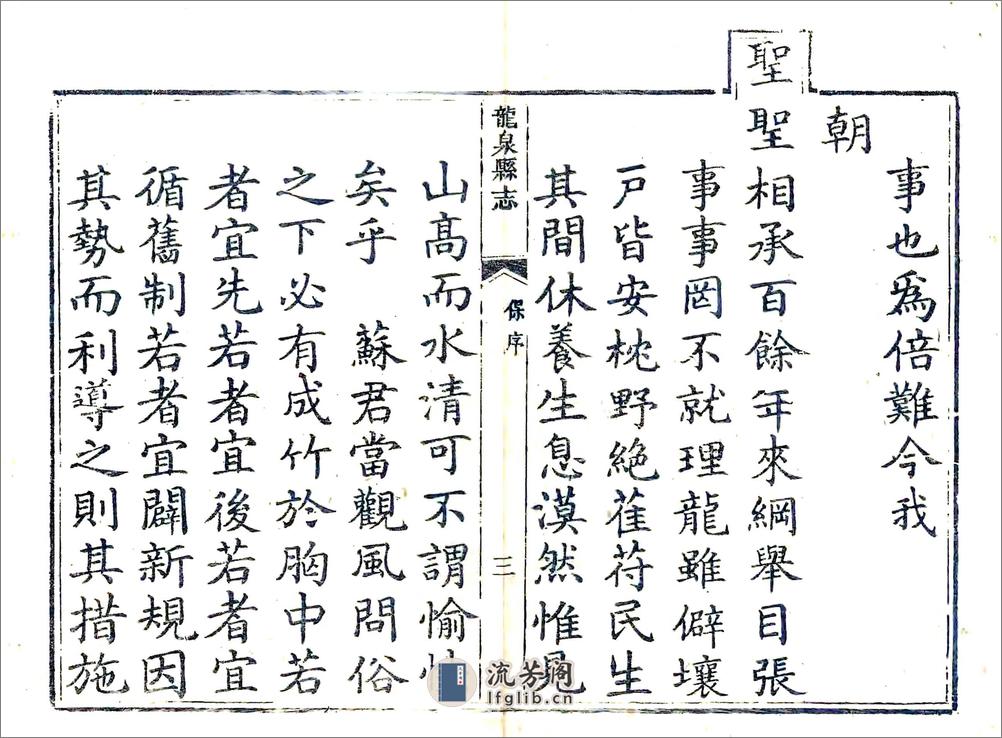 事也爲倍難今我
朝
聖聖相承百餘年來綱舉目張
事事罔不就理龍雖僻壤
戸皆安枕野絶萑苻民生
其間休養生息漠然惟見
龍泉縣志
保序
三
山高而水清可不謂愉快
矣乎 蘇君當觀風問俗
之下必有成竹於胸中若
者宜先若者宜後若者宜
循舊制若者宜闢新規因
其勢而利導之則其措施
流芳阁
lfglib.cn